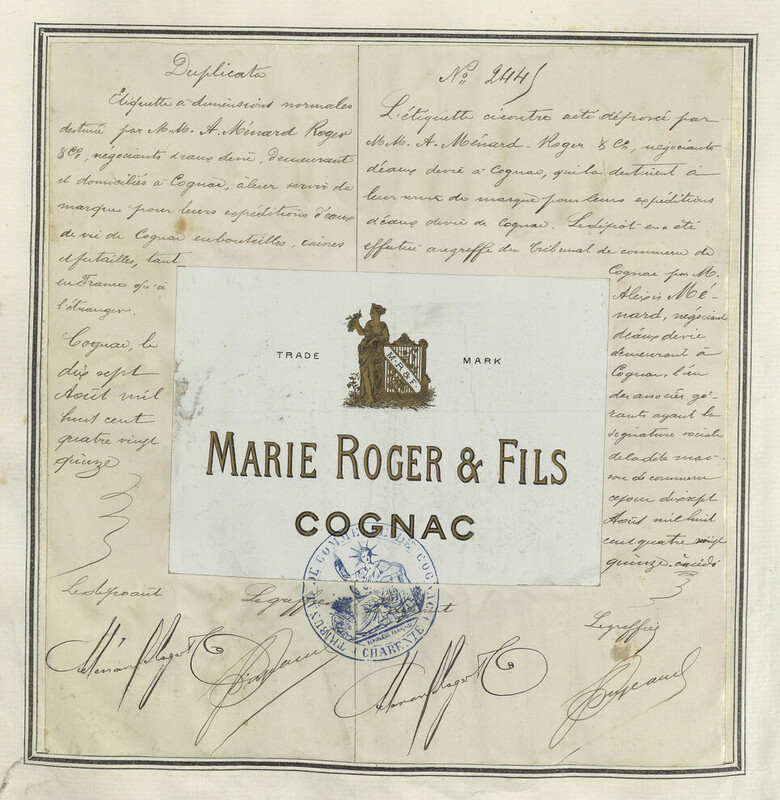 Duplicata
Etiquette à dimensions normales
destinée par M.M. A. Ménard Roger
& Co, négociants d'eaux de vie, demeurant
et domiciliés à Cognac, à leur servir de
marque pour leurs expéditions d'eaux
de vie de Cognac en bouteilles, caisses
et futailles, tant
en France qu'à
l'étranger.
Cognac, le
dix sept
Août mil
huit cent
quatre vingt
quinze
Le déposant
Le greffier
No 2445
L'étiquette ci contre a été déposée par
M.M. A. Ménard-Roger & Co, négociants
d'eaux de vie à Cognac, qui la destinent à
leur servir de marque pour leurs expéditions
d'eaux de vie de Cognac. Le dépôt en a été
effectué au greffe du Tribunal de commerce de
Cognac par M.
Alexis Mé-
nard, négociant
d'eaux de vie
demeurant à
Cognac, l'un
des associés gé-
rants ayant la
signature sociale
de la dite mai-
son de commerce
ce jour dix sept
Août mil huit
cent quatre vingt
quinze. à midi
Le greffier
TRADE MARK
M.R & F.
MARIE ROGER & FILS
COGNAC
TRIBUNAL DE COMMERCE DE COGNAC
(CHARENTE)
Ménard Roger & Co
Ménard Roger & Co